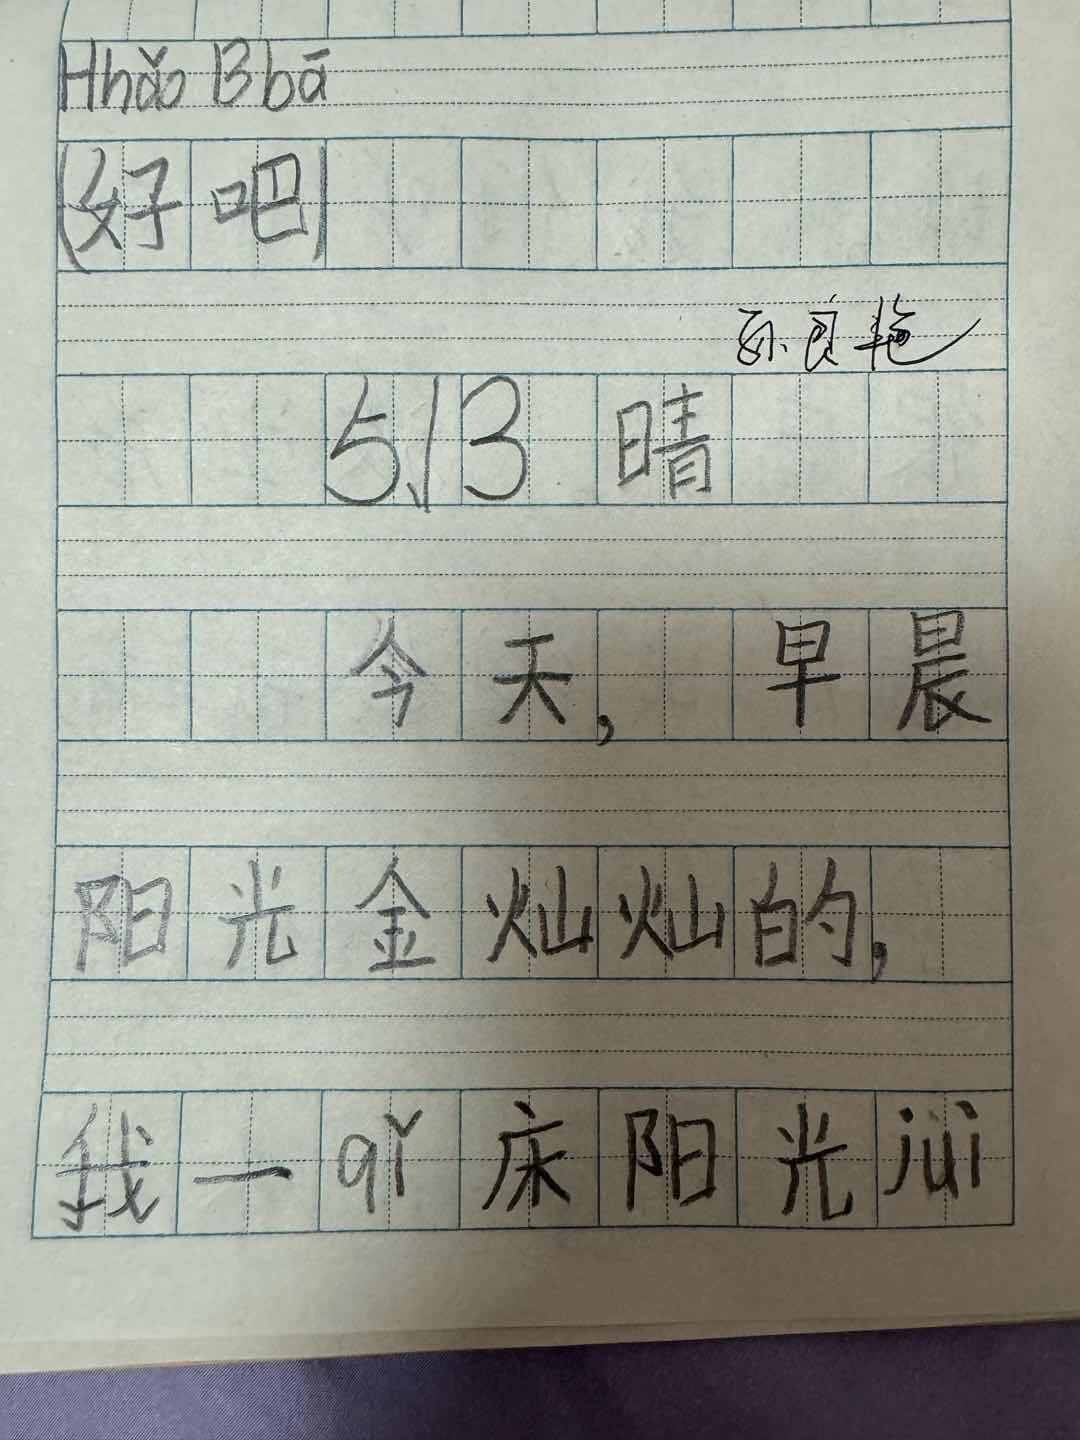 Hhǎo Bbā
(好吧)
孙良艳
5.13 晴
今天,早晨
阳光金灿灿的,
我一qǐ床阳光jiùi